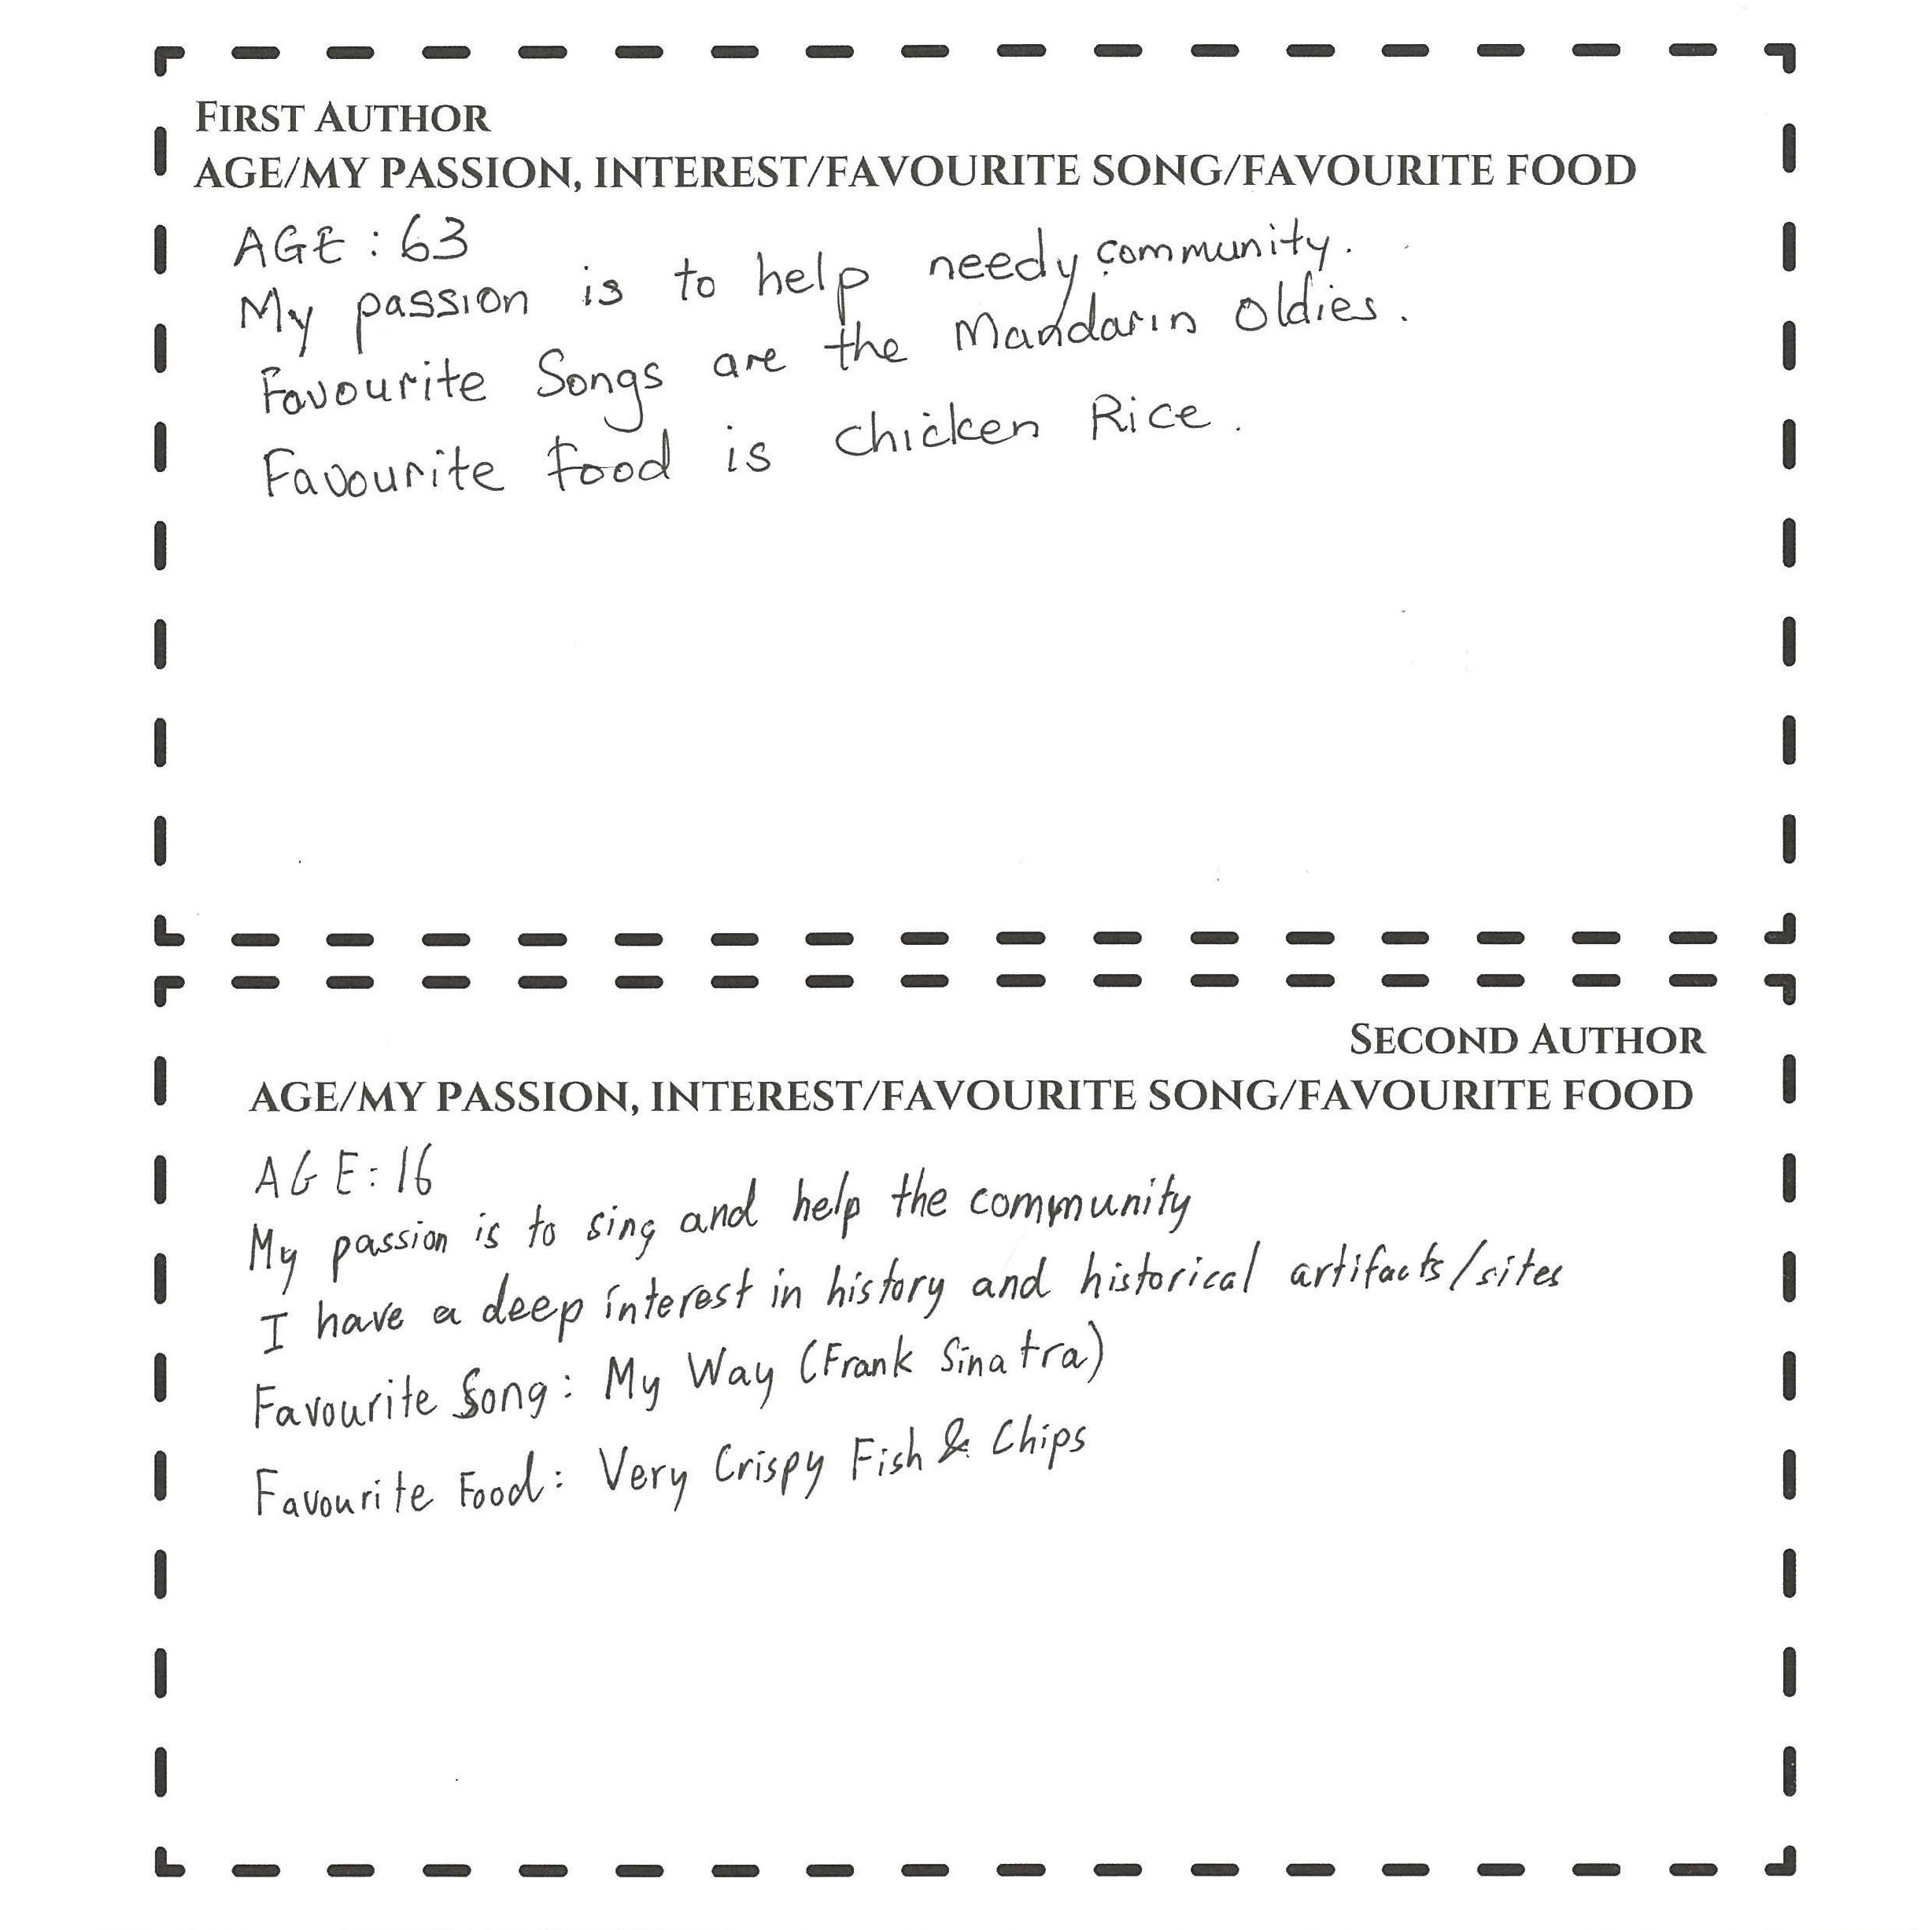 FIRST AUTHOR
AGE/MY PASSION, INTEREST/FAVOURITE SONG/FAVOURITE FOOD
AGE : 63
My passion is to help needy community.
Favourite Songs are the Mandarin Oldies.
Favourite Food is Chicken Rice.
SECOND AUTHOR
AGE/MY PASSION, INTEREST/FAVOURITE SONG/FAVOURITE FOOD
AGE: 16
My passion is to sing and help the community
I have a deep interest in history and historical artifacts/sites
Favourite Song: My Way (Frank Sinatra)
Favourite Food: Very Crispy Fish & Chips